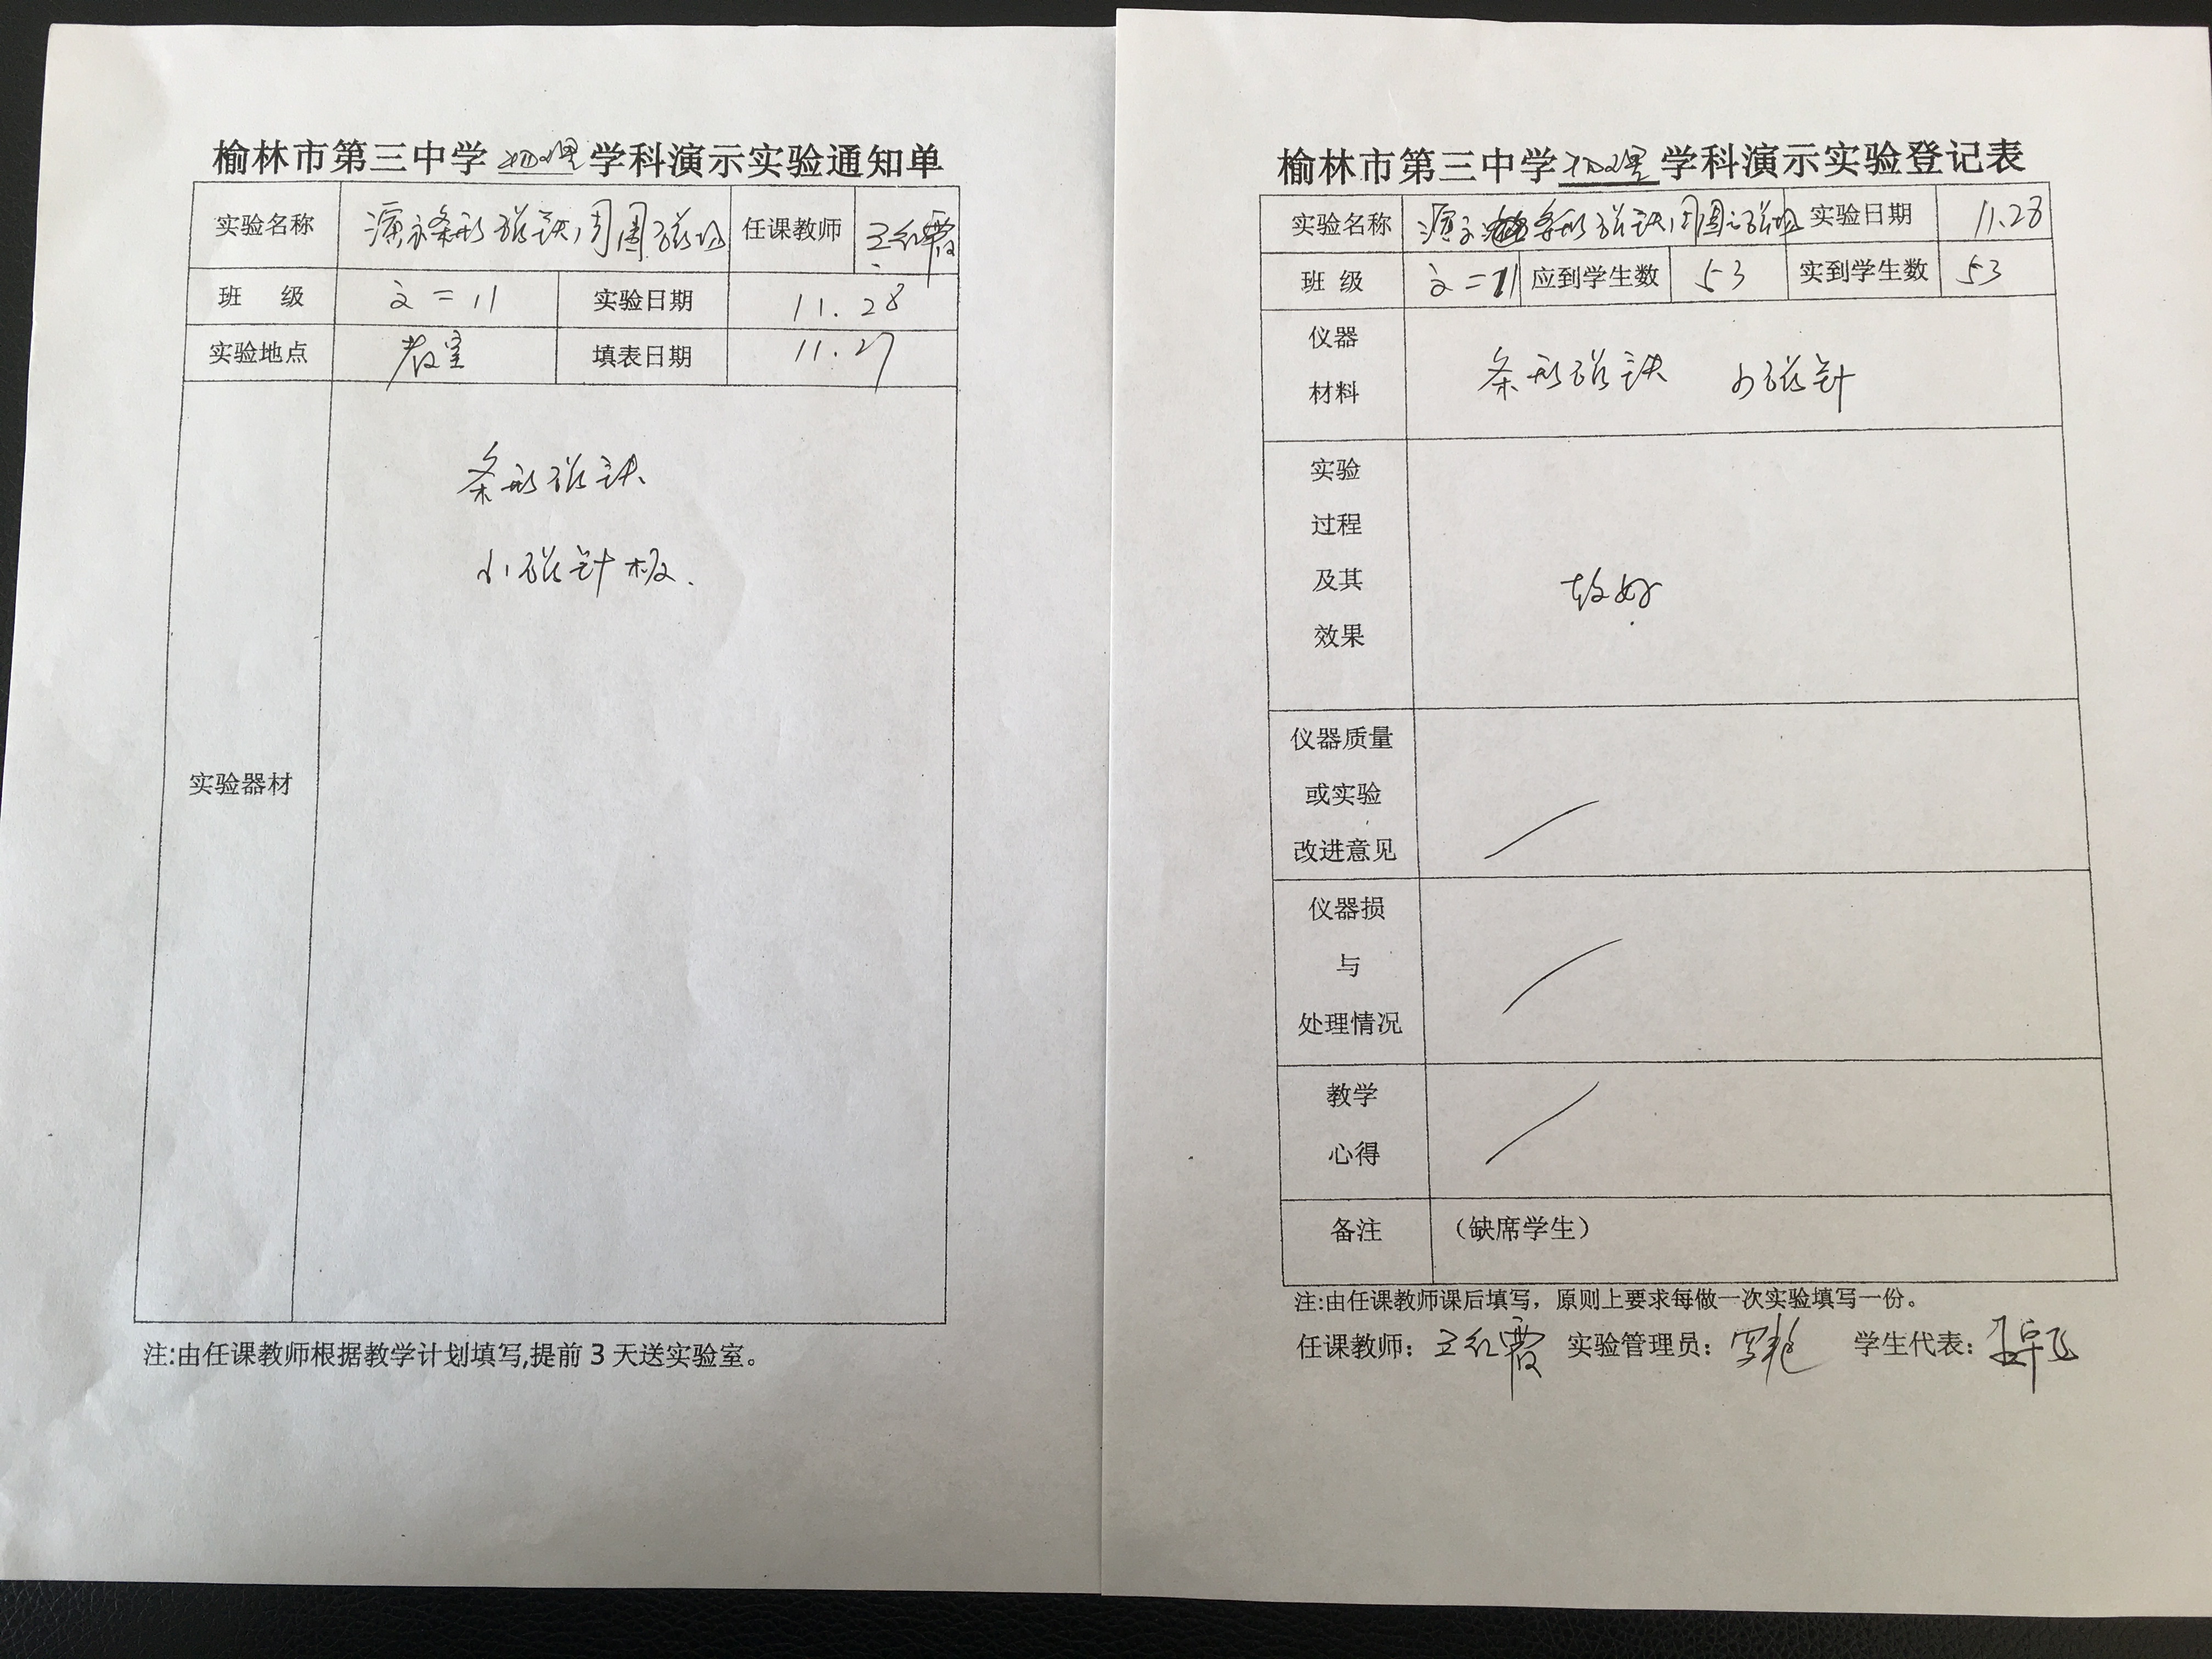 榆林市第三中学 物理 学科演示实验通知单
实验名称 演示条形磁铁周围磁场 任课教师 王红霞
班 级 高二11 实验日期 11.28
实验地点 教室 填表日期 11.27
实验器材
条形磁铁
小磁针板.
注:由任课教师根据教学计划填写,提前3天送实验室。
榆林市第三中学 物理 学科演示实验登记表
实验名称 演示条形磁铁周围磁场 实验日期 11.28
班 级 高二11 应到学生数 53 实到学生数 53
仪器
材料
条形磁铁 小磁针
实验
过程
及其
效果
较好
仪器质量
或实验
改进意见
仪器损
与
处理情况
教学
心得
备注 （缺席学生）
注:由任课教师课后填写，原则上要求每做一次实验填写一份。
任课教师：王红霞 实验管理员： 学生代表：